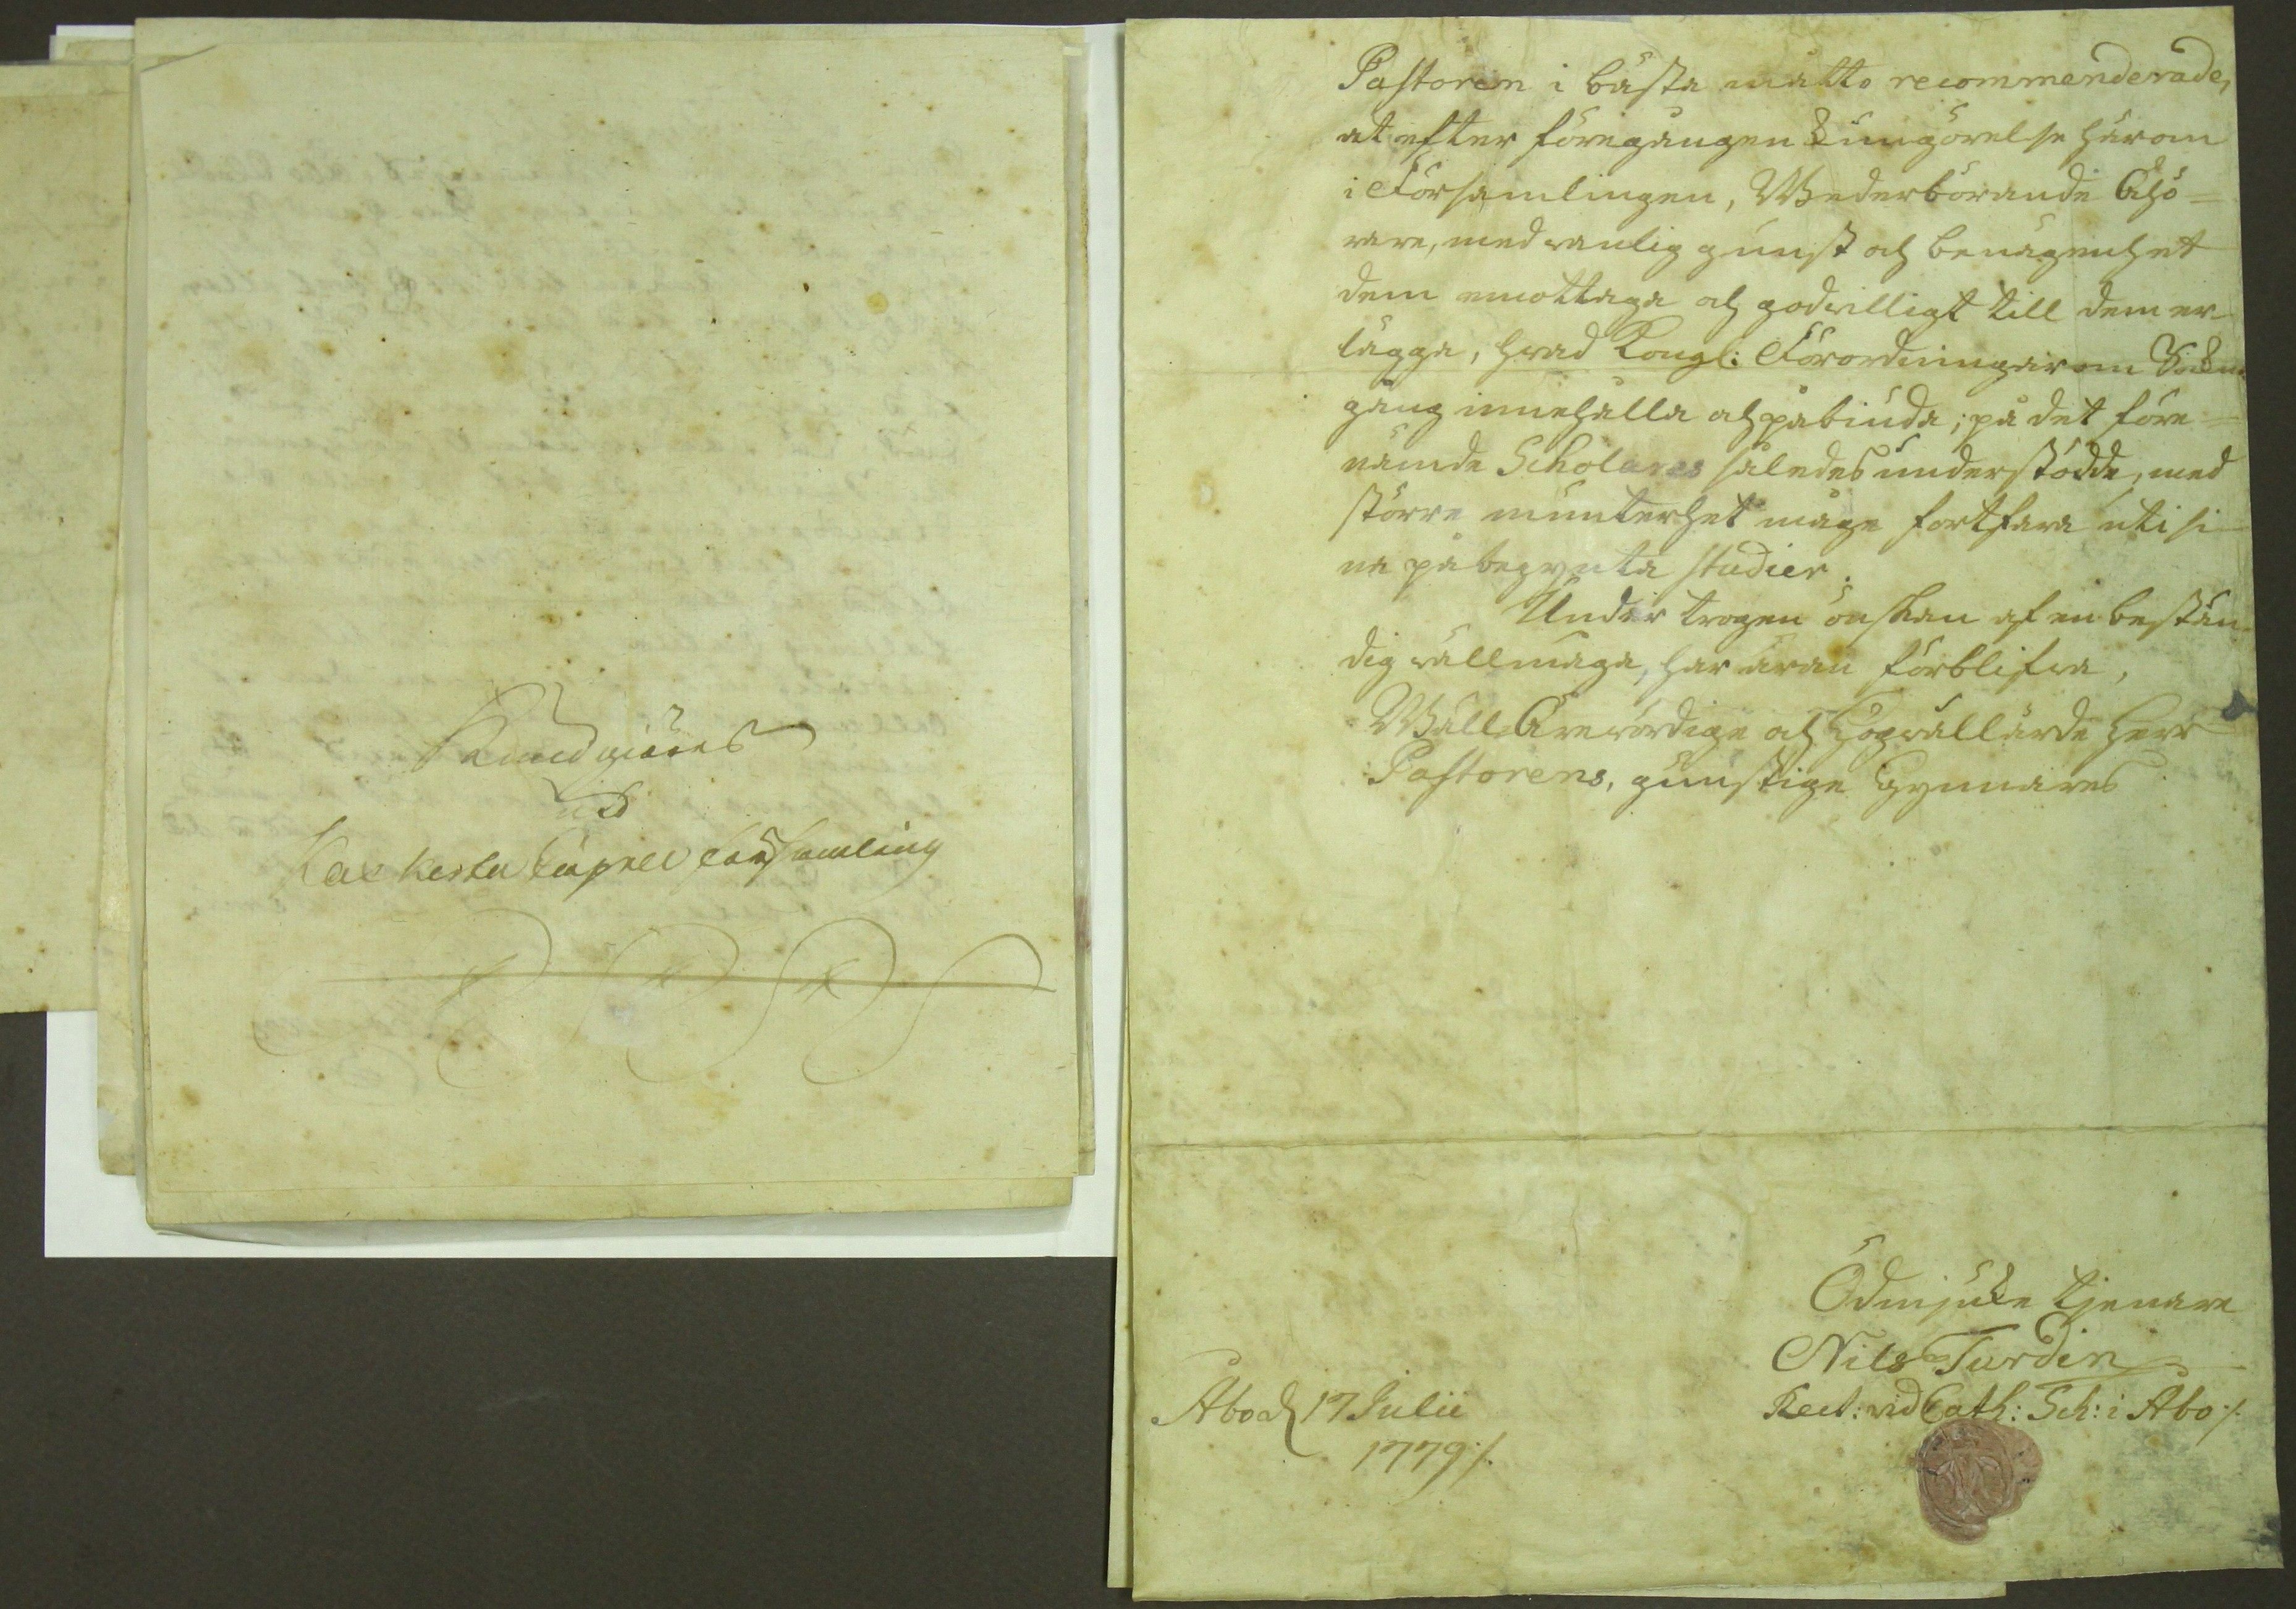 Kundgiöres
uti
Karkerla Capell församling
Pastoren i bästa måtto recommenderade,
at efter föregången kungörelse härom
i Församlingen, Wederbörande Åhö=
rare, med wanlig gunst och benägenhet
dem emottaga och godwilligt till dem er
lägga, hwad Kongl: Förordningar om Sokn
gång innehålla och påbiuda; på det före=
nämde Scholares således understödde, med
större munterhet måge fortfara uti si
na påbegynta studier.
Under trogen önskan af en bestän
dig wällmåga, har äran förblifwa,
Wäll Ärewördige och Högwällärde Herr
Pastorens, gunstige Gynnares
Ödmjuke tjenare
Nils Turdin
Rect: vid Cath: Sch: i Åbo ./.
Åbo d 17 Julii
1779 ./.